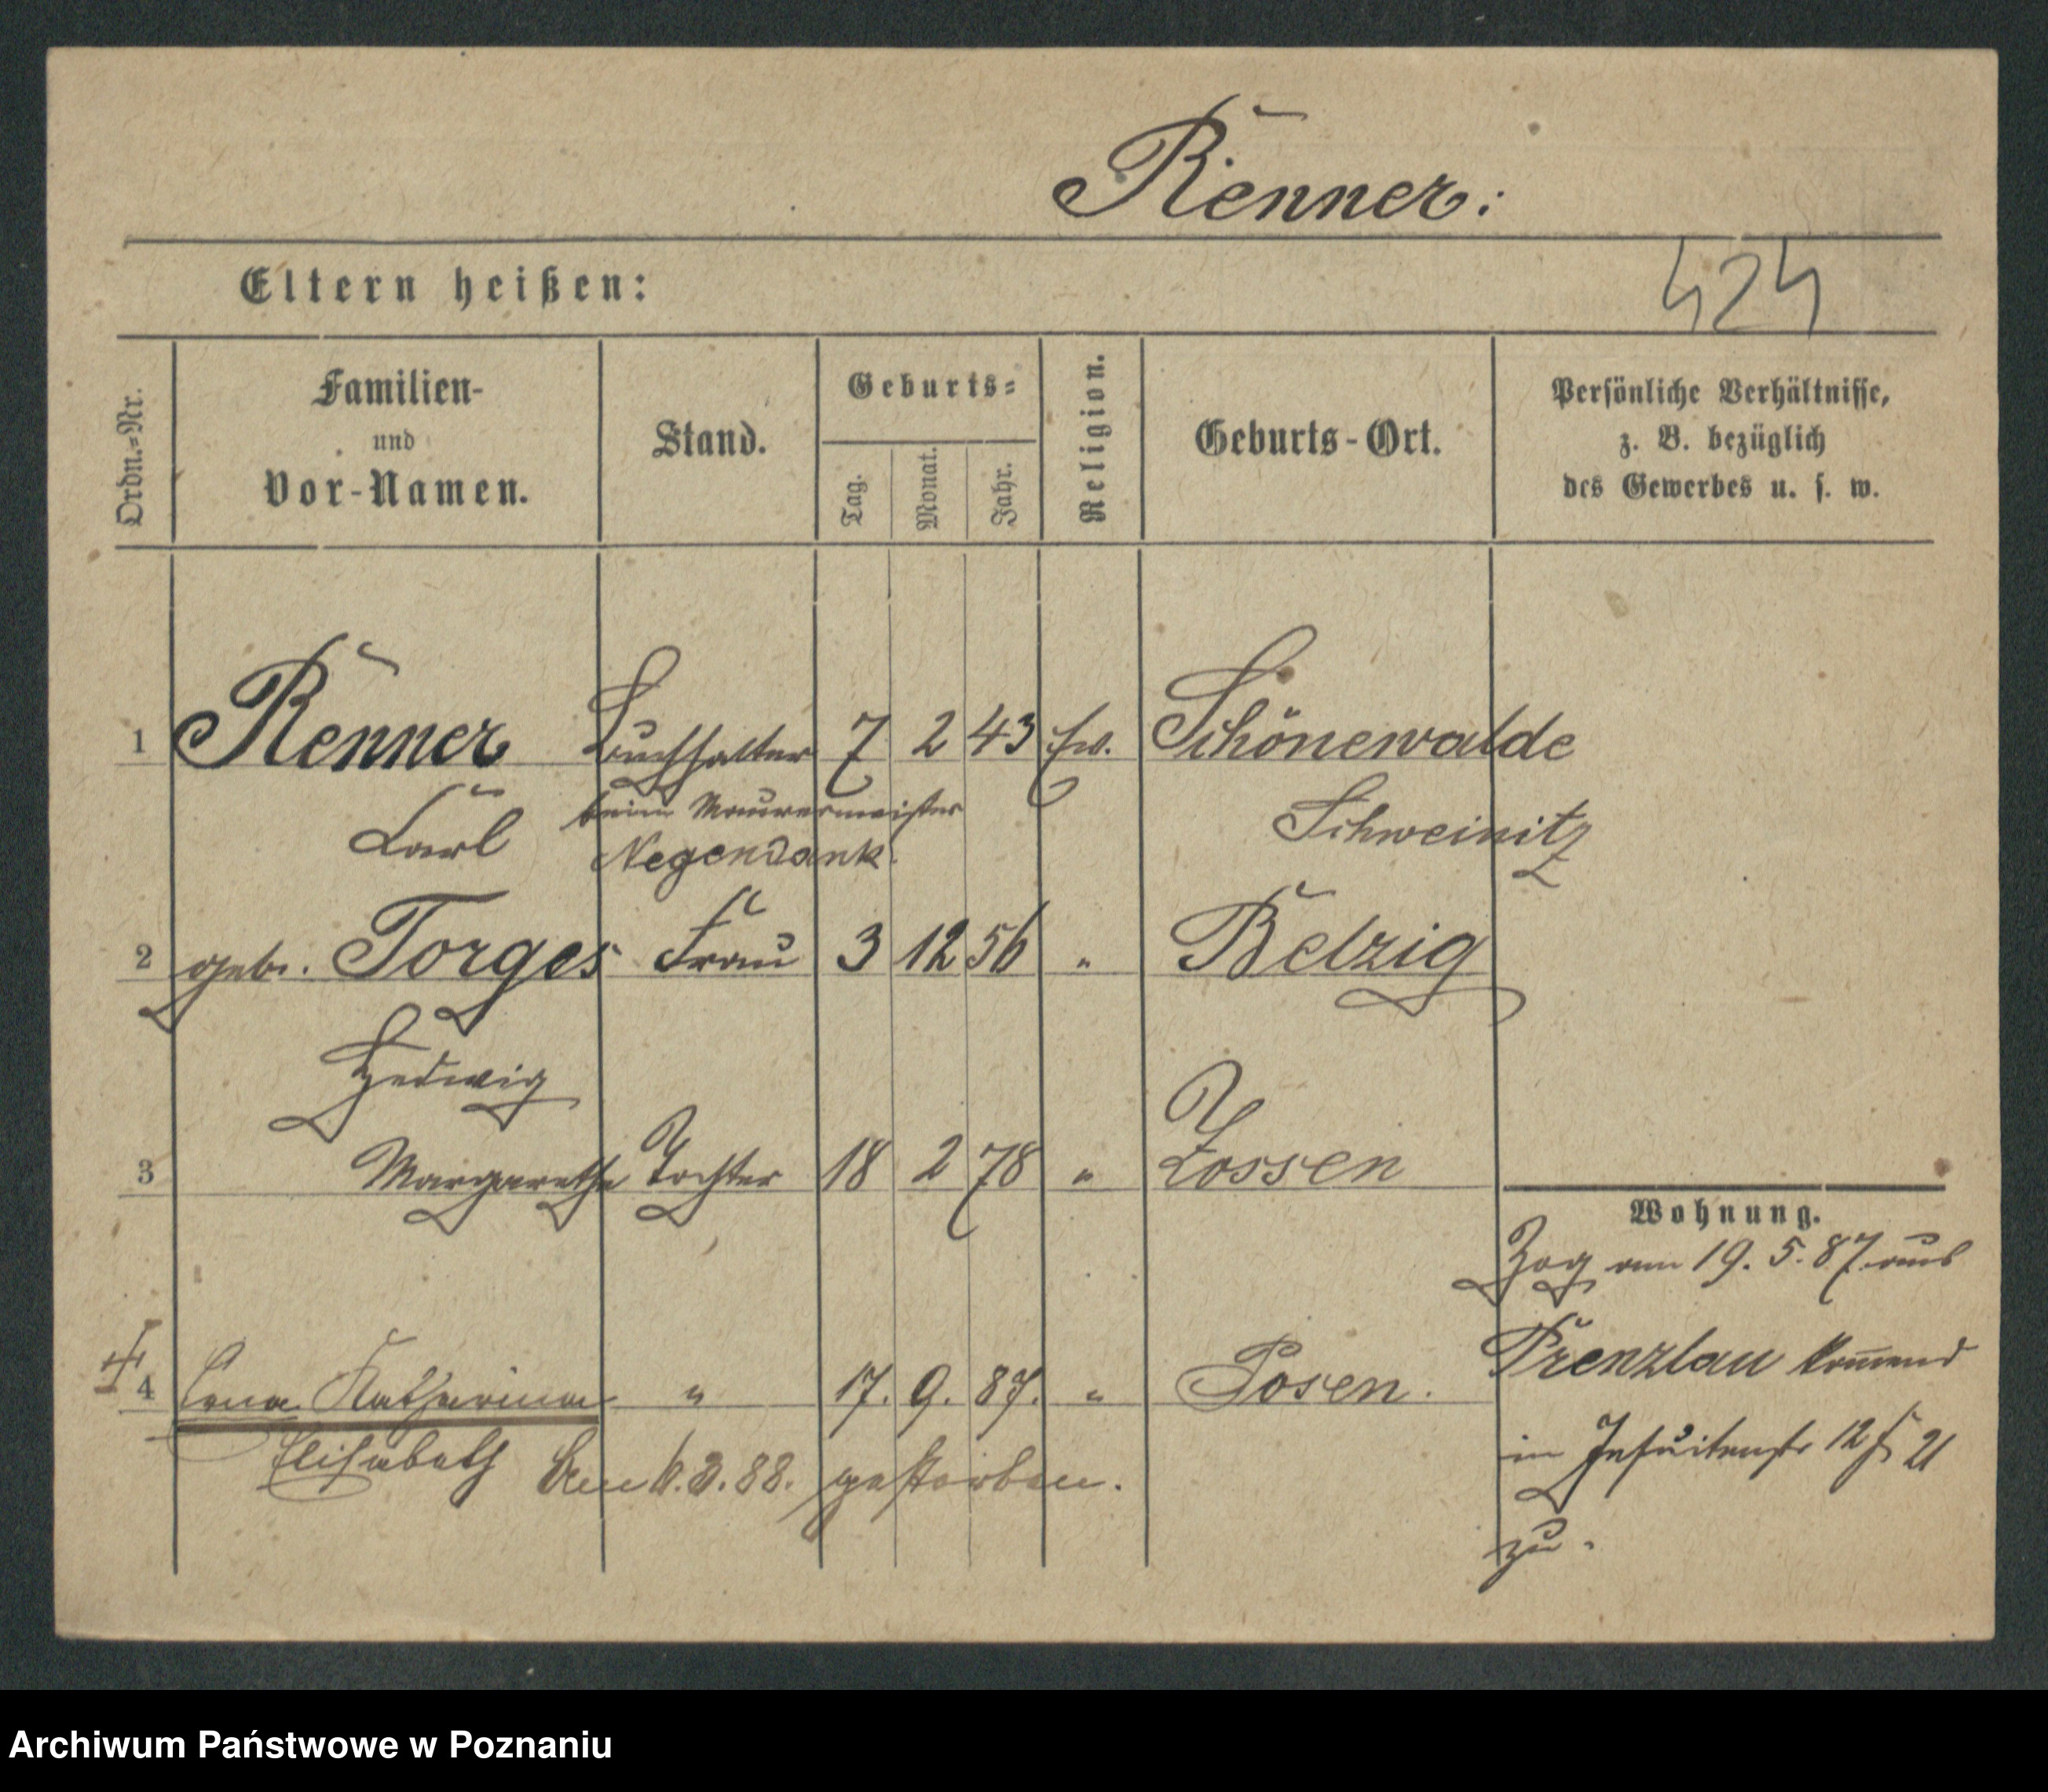 Renner:
Eltern heißen:
424
Ordn.=Nr.
Familien-
und
Vor-Namen.
Stand.
Geburts=
Tag.
Monat.
Jahr.
Religion.
Geburts-Ort.
Persönliche Verhältnisse,
z. B. bezüglich
des Gewerbes u. s. w.
1 Renner Buchhalter 7 2 43 ev. Schönewalde
Carl beim Maurermeister Schweinitz
Negendank.
2 geb. Torges Frau 3 12 56 " Belzig
Hedwig
3 Margarethe Tochter 18 2 78 " Zossen
Wohnung.
Zog am 19. 5. 87 aus
Prenzlau kommend
in Jesuitenstr 12 21
zu.
4 Erna Katharina " 17. 9. 87. " Posen.
Elisabeth den 88. gestorben.
Archiwum Państwowe w Poznaniu